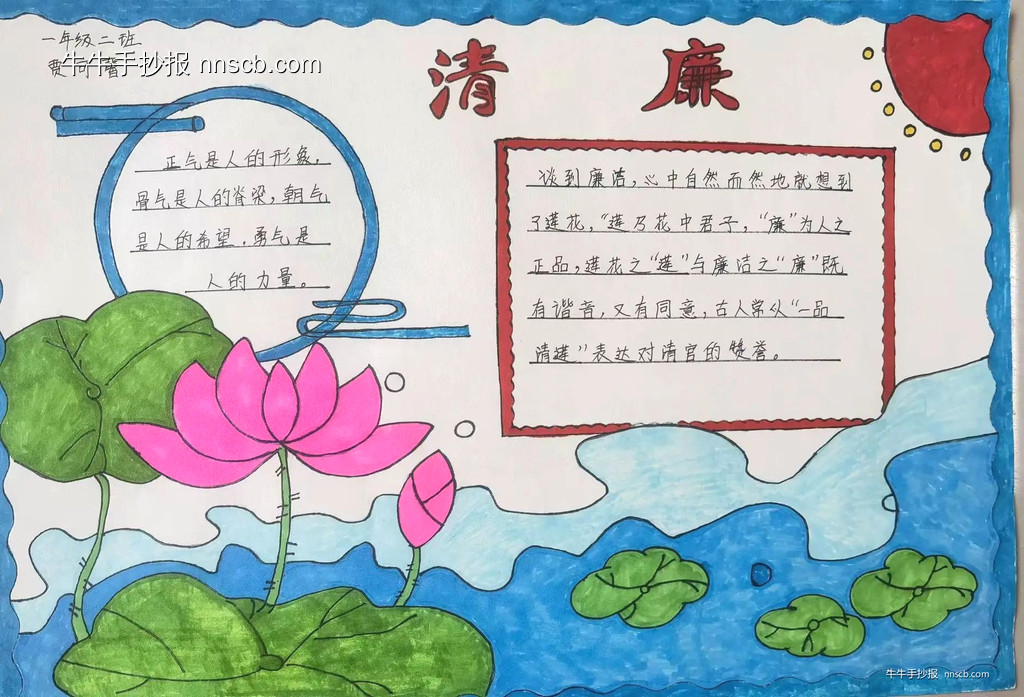 一年级二班
贾
牛牛手抄报 nnscb.com
清 廉
正气是人的形象，
骨气是人的脊梁，朝气
是人的希望，勇气是
人的力量。
谈到廉洁，心中自然而然地就想到
了莲花，“莲乃花中君子，“廉”为人之
正品，莲花之“莲”与廉洁之“廉”既
有谐音，又有同意，古人常以“一品
清莲”表达对清官的赞誉。
牛牛手抄报 nnscb.com